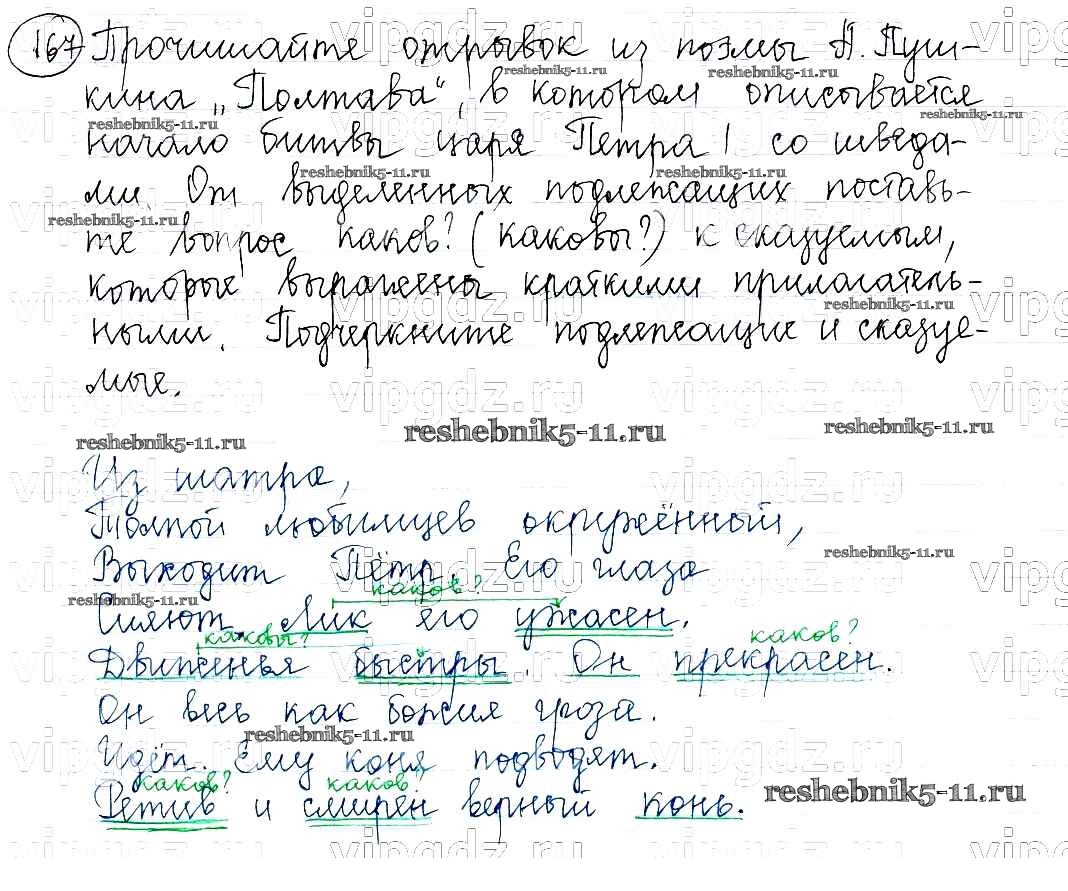 167 Прочитайте отрывок из поэмы А. Пуш-
кина „Полтава“, в котором описывается
начало битвы царя Петра I со шведа-
ми. От выделенных подлежащих поставь-
те вопрос каков? (каковы?) к сказуемым,
которые выражены краткими прилагатель-
ными. Подчеркните подлежащие и сказуе-
мые.
reshebnik5-11.ru
Из шатра,
Толпой любимцев окружённый,
Выходит Пётр. Его глаза
каков?
Сияют. Лик его ужасен.
каковы? каков?
Движенья быстры. Он прекрасен.
Он весь как божия гроза.
Идёт. Ему коня подводят.
каков? каков?
Ретив и смирен верный конь.
reshebnik5-11.ru
vipgdz.ru